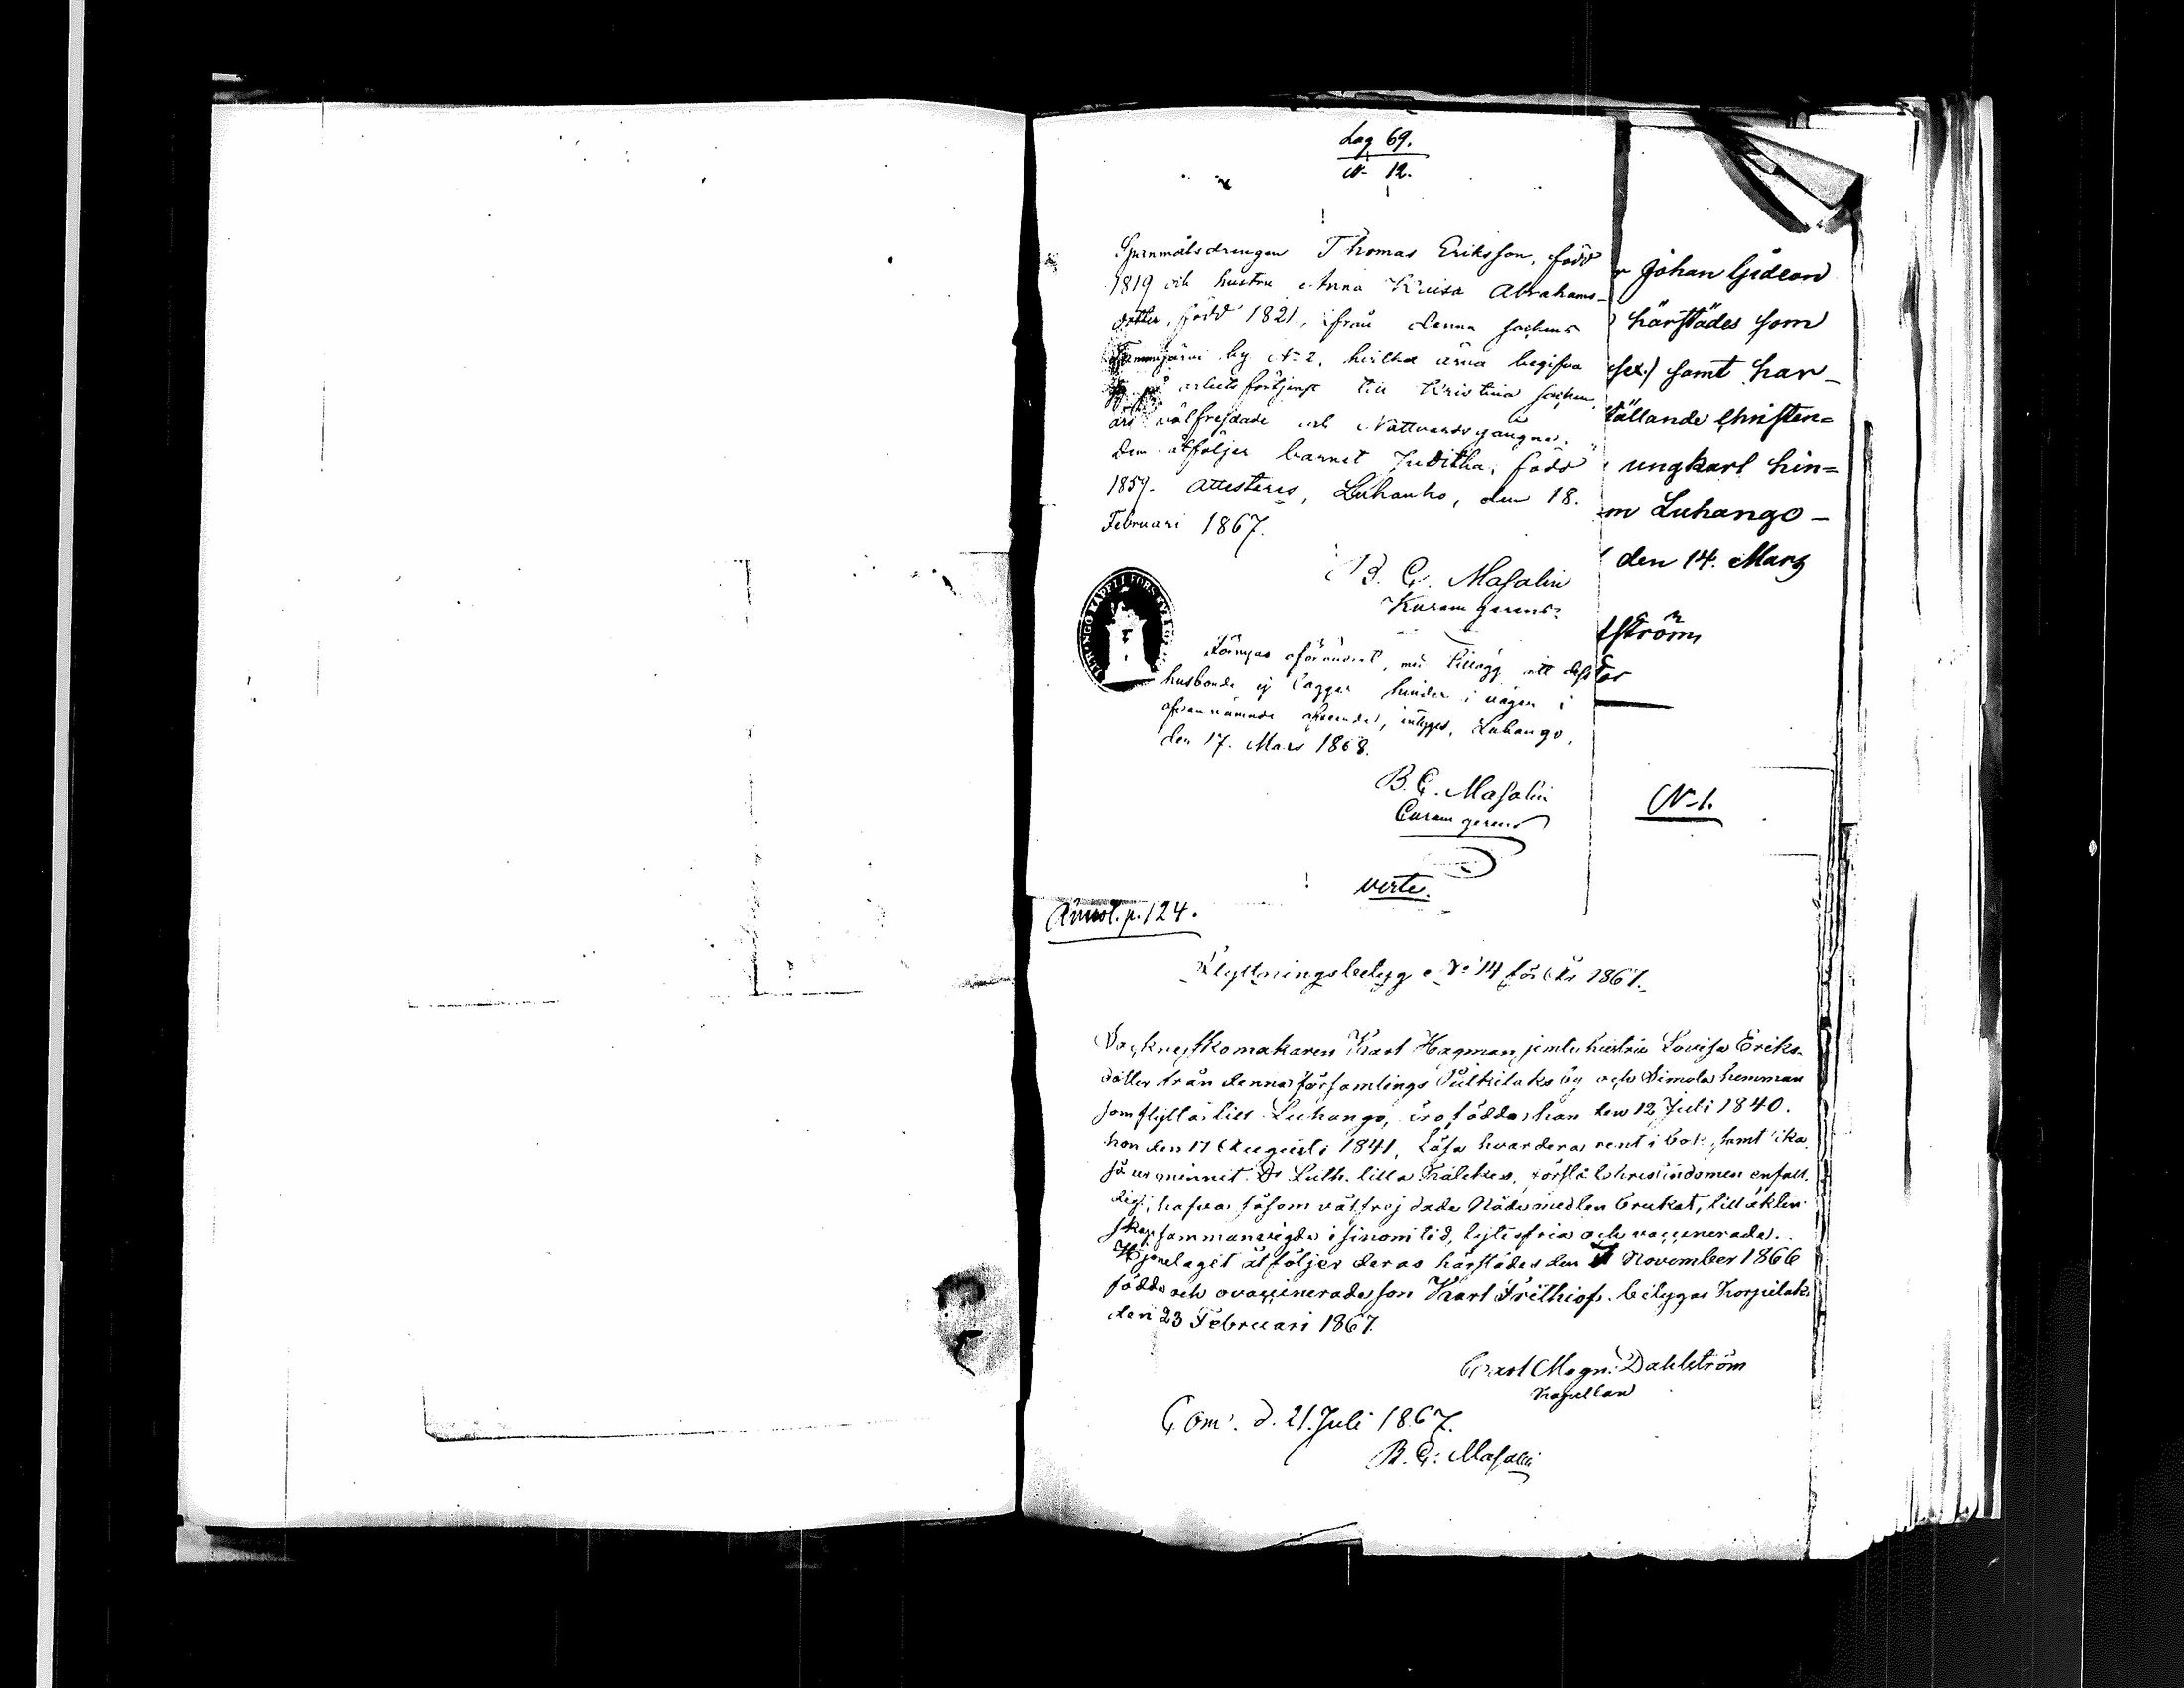 Lag 69.
N 12.
Spanmålsdrengen Thomas Eriksson, född
1819 och hustru Anna Abrahams-
dotter, född 1821., ifrån denna sochens
by N 2, hvilka ärna begifva
sig på arbets förtjenst till Kristina sochen,
äro välfrejdade och Nattvards gångna.
Dem åtföljer barnet Juditha, född
1859. Attesteras, Luhanko, den 18.
Februari 1867.
B. C. Masalin
Kuram gerens.
LUHANGO KAPELL FÖRS
oförändrat, med tillägg att dess
husbonde ej lägger hinder i vägen i
ofvannämnde afseende, intygas, Luhango,
den 17. Mars 1868.
B. C. Masalin
Curam gerens
verte.
r Johan Gideon
härstädes som
samt har-
tällande Christen=
ungkarl hin=
m Luhango-
den 14. Mars
ström
N 1.
Annot. p. 124.
Flyttningsbetyg No 14 för År 1867.
Sockneskomakaren Karl Hagman, jemte hustru Lovisa Eriks-
dotter från denna församlings Putkilaks by och Simola hemman
som flytta till Luhango, äro födda, han den 12 Juli 1840.
hon den 17 Augusti 1841, Läsa hvardera rent i bok, samt lika
så ur minnet Dr Luth. lilla Katekes, förstå Christendomen enfall.
deligt, hafva såsom välfrejdade Nådemedlen brukat, till äkten
skap sammanvigde i sinom tid, lytesfria och vaccinerade.
Hjonelaget åtföljer deras härstädes den 7 November 1866
födda och ovaccinerade son Karl Frithiof. betygar Korpilaks
den 23 Februari 1867.
Carl Magn. Dahlström
Kapellan
Com. d. 21. Juli 1867.
B. C. Masalin